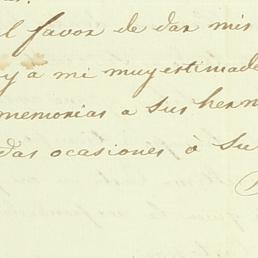 el favor de dar mis
y a mi muy estimade
memorias a sus herm
das ocasiones à su